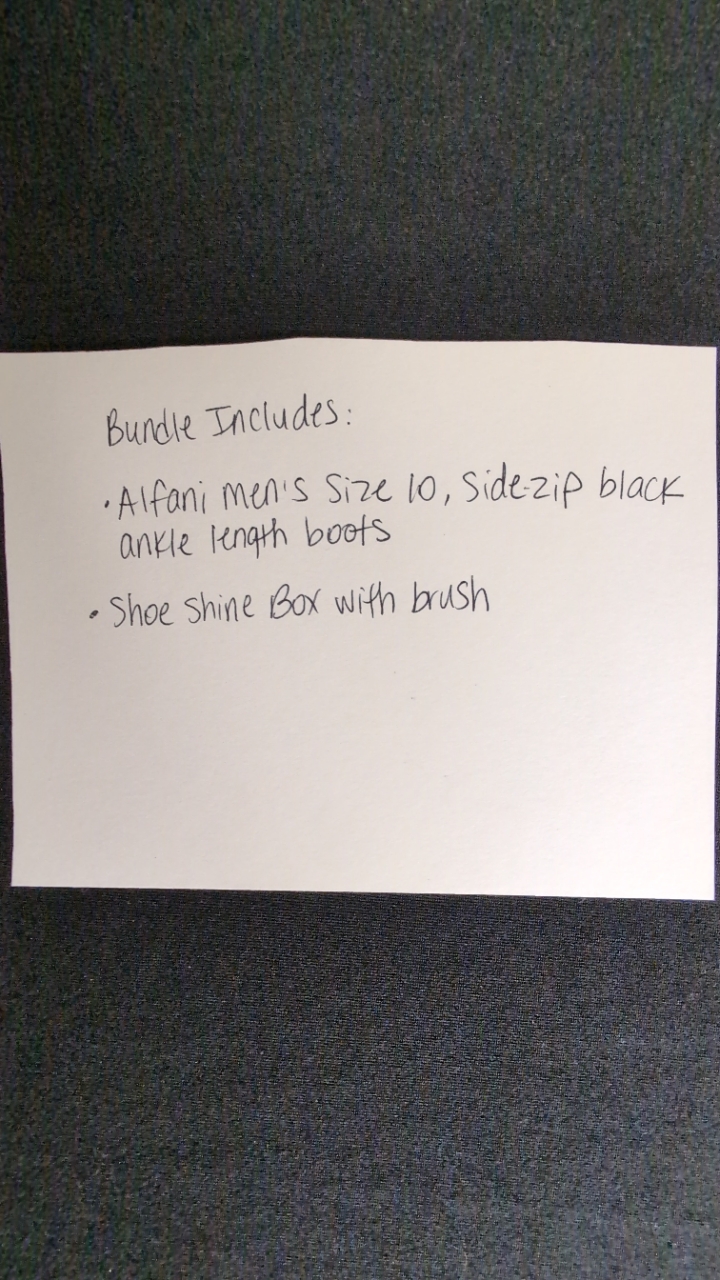 Bundle Includes:
• Alfani men's Size 10, Side-zip black
ankle length boots
• Shoe Shine Box with brush